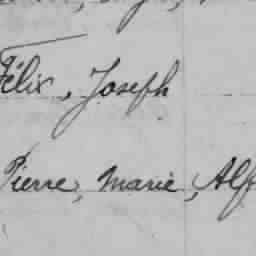 Félix, Joseph
Pierre, Marie, Alf